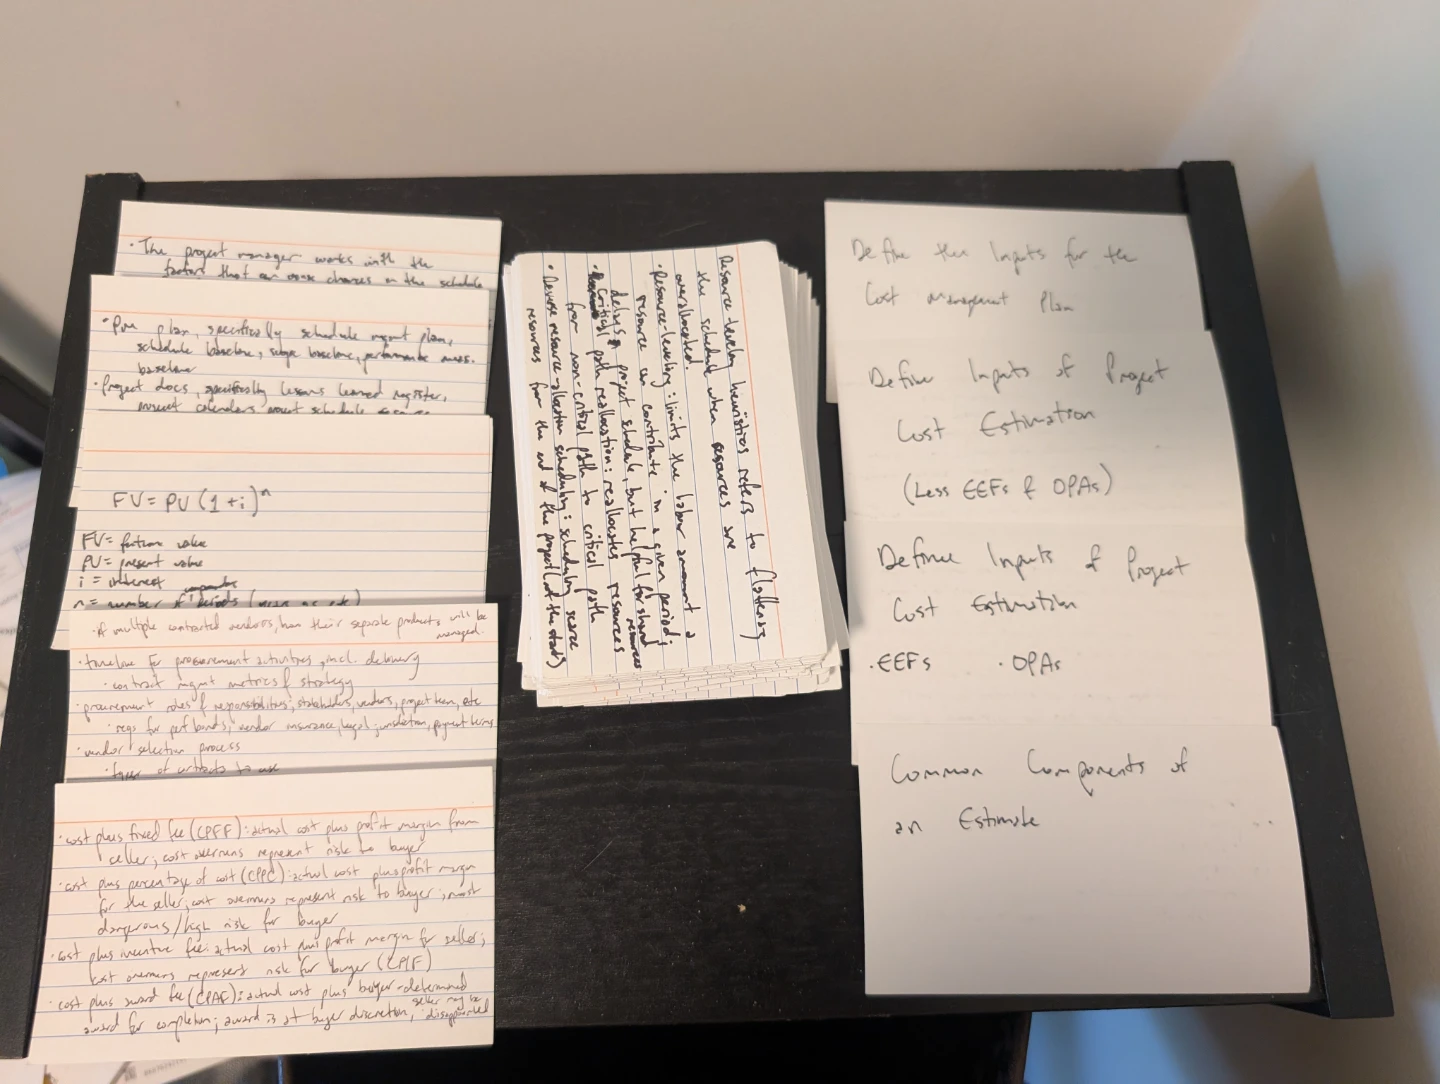 • The project manager works with the
factors that can cause changes on the schedule
• PM plan, specifically schedule mgmt plan,
schedule baseline, scope baseline, performance meas.
baseline
• Project docs, specifically lessons learned register,
project calendars project schedule
FV = PV (1+i)ⁿ
FV = future value
PV = present value
i = interest
n = number of periods (
• if multiple contracted vendors, how their separate products will be
managed.
• timeline for procurement activities, incl. delivery
• contract mgmt metrics & strategy
• procurement roles & responsibilities; stakeholders, vendors, project team, etc
• reqs for perf bonds, vendor insurance, legal jurisdiction, payment terms
• vendor selection process
• types of contracts to use
• cost plus fixed fee (CPFF): actual cost plus profit margin from
seller; cost overruns represent risk to buyer
• cost plus percentage of cost (CPPC): actual cost plus profit margin
for the seller; cost overruns represent risk to buyer; most
dangerous/high risk for buyer
• cost plus incentive fee: actual cost plus profit margin for seller;
cost overruns represent risk for buyer (CPIF)
• cost plus award fee (CPAF): actual cost plus buyer-determined
award for completion; award is at buyer discretion, seller may be
disappointed
Resource-leveling heuristics refers to flattening
the schedule when resources are
overallocated.
• Resource-leveling: limits the labour amount a
resource can contribute in a given period;
delays project schedule, but helpful for shared resources
• Critical path reallocation: reallocates resources
from non-critical path to critical path
• Reverse resource-allocation scheduling: scheduling scarce
resources from the end of the project (not the start)
Define then Inputs for the
Cost Management Plan
Define Inputs of Project
Cost Estimation
(Less EEFs & OPAs)
Define Inputs of Project
Cost Estimation
• EEFs • OPAs
Common Components of
an Estimate